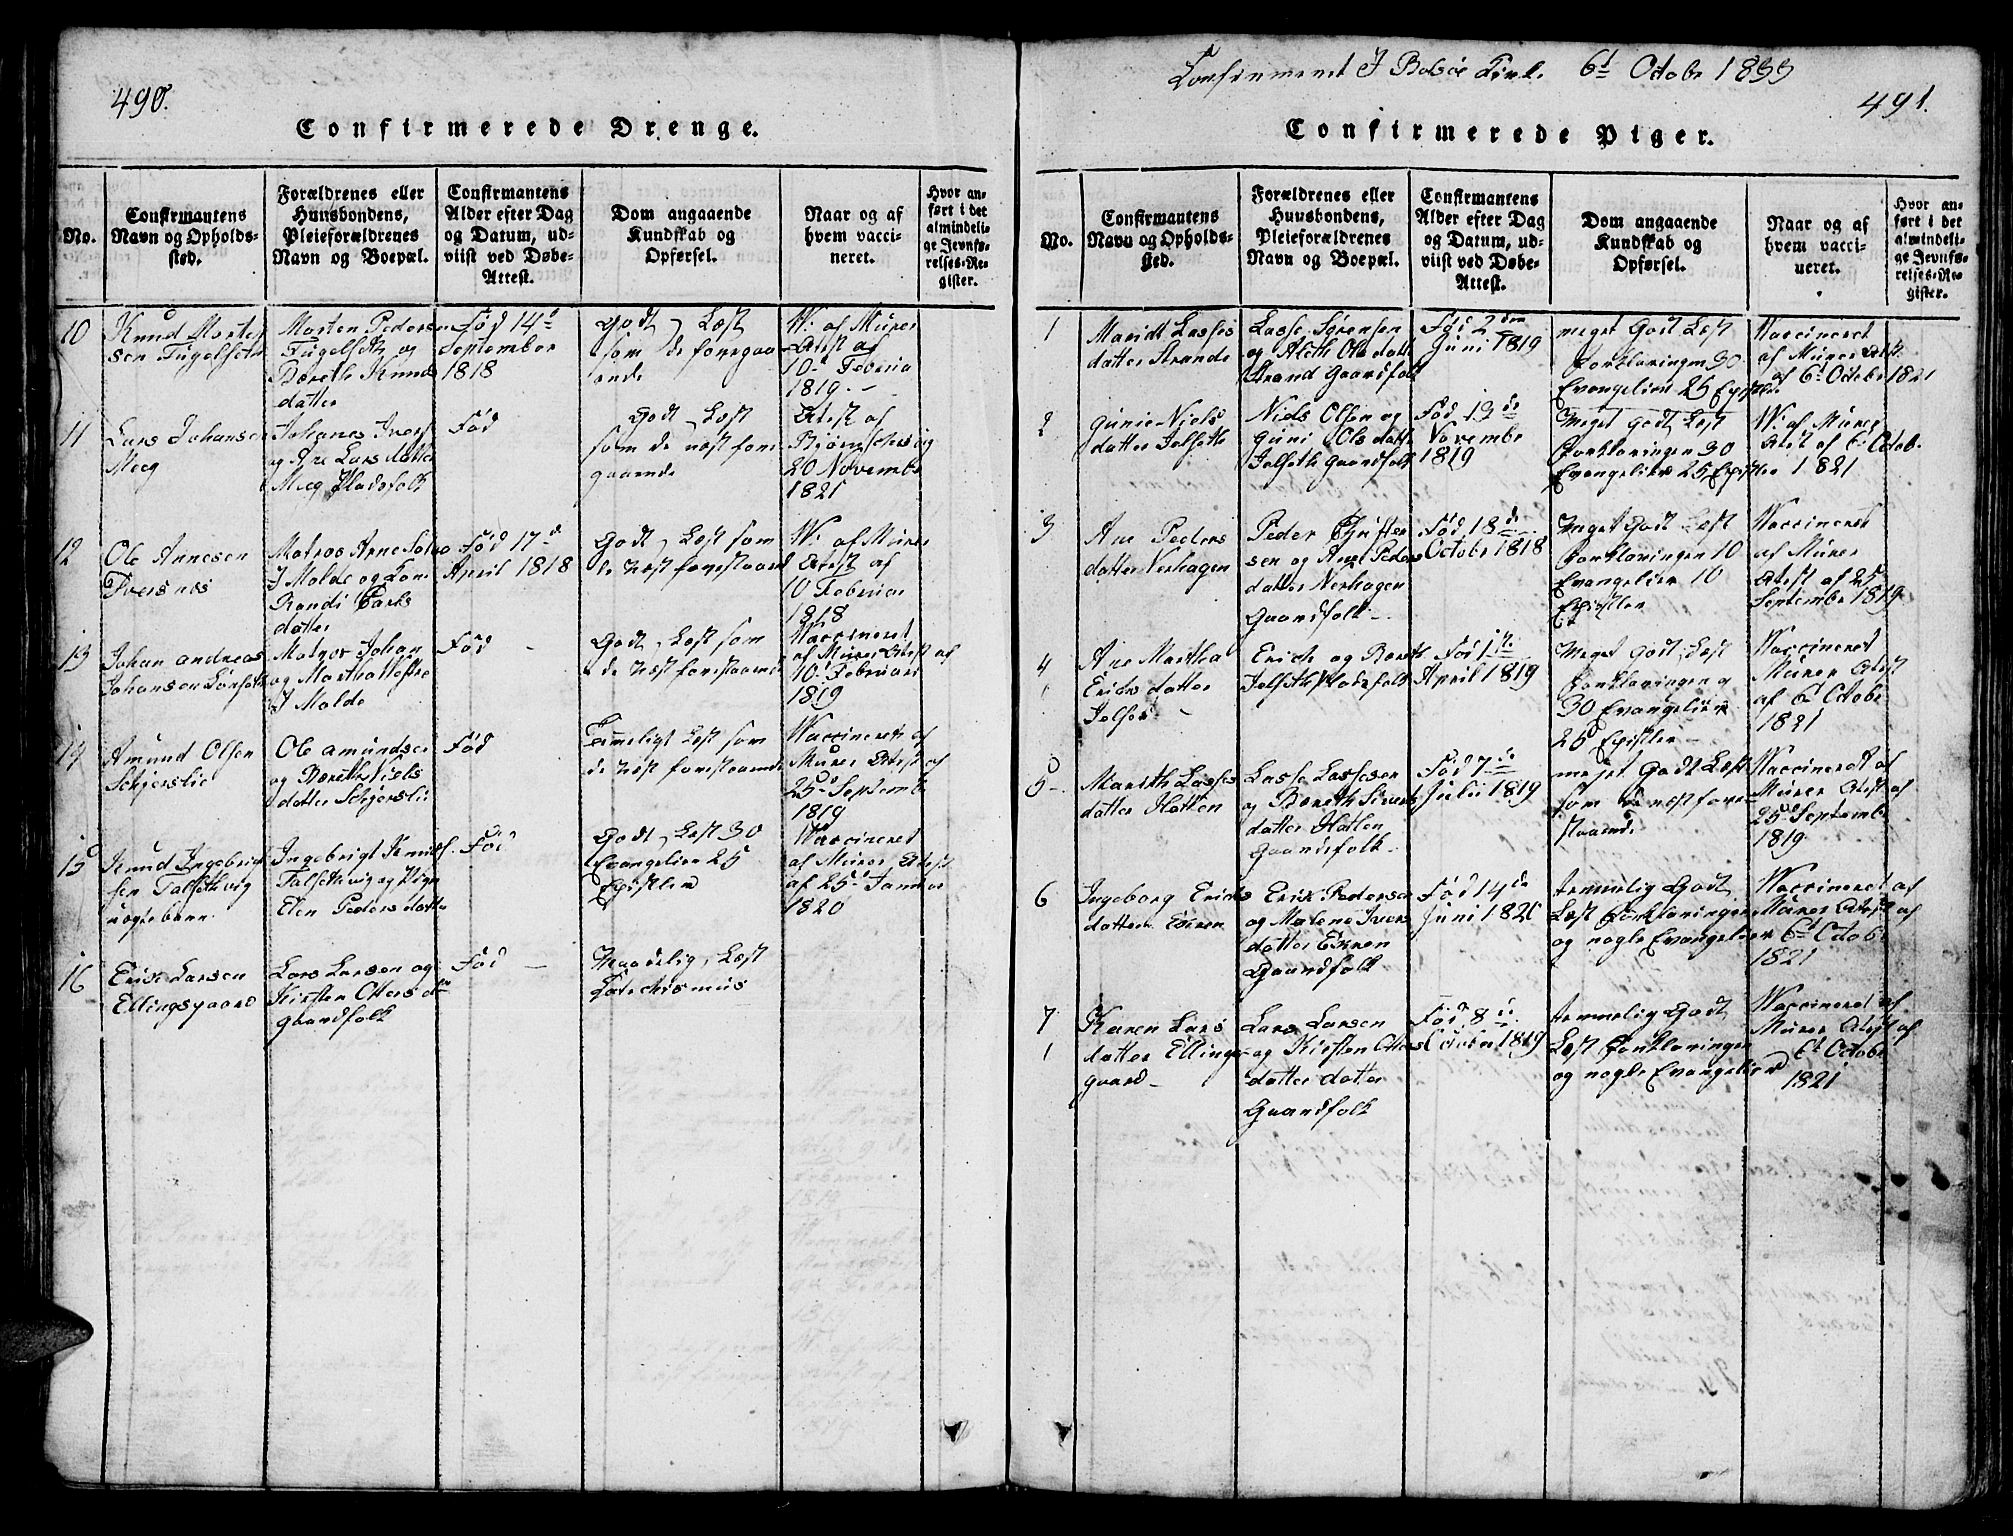 490.
Confirmerede Drenge.
No.
Confirmantens
Navn og Opholds-
sted.
Forældrenes eller
Huusbondens,
Pleieforældrenes
Navn og Boepæl.
Confirmantens
Alder efter Dag
og Datum, ud-
viist ved Døbe-
Attest.
Dom angaaende
Kundskab og
Opførsel.
Naar og af
hvem vacci-
neret.
Hvor an-
ført i det
almindeli-
ge Jevnfø-
relses-Re-
gister.
10
Knud Morten
sen Fugelseth
Morten Pedersen
Fugelseth og
Bereth Knuds
datter
Fød 14d
September
1818
Godt, Læst
som de foregaa
ende
W: af Murer
Atest af
10d Februa
1819.
11
Lars Johansen
Meeg
Johanes Ivers
og Ane Lars datter
Meeg Pladsfolk
Fød
Godt Læst
som de nest fore
gaaende
Atest af
20 Novembe
1821
12
Ole Arnesen
Fversnæs
Matros Arne
I Molde og Kone
Randi Lars
datter
Fød 17de
April 1818
Godt, Læst som
de næst forestaaend
W: af Murer
Atest af
10 Februar
1818
13
Johan andreas
Johansen Lønseth
Matros Johan
og Martha
I Molde
Fød
Godt, Læst som
de næst forestaaende
Waccineret
af Murer Atest af
10d Februari
1819
14
Amund Olsen
Schjerslie
Ole amundsen
og Bereth Niels
datter Schjerslie
Fød
Temmeligt Læst som
de næst forestaaende
Waccineret af
Murer Atest af
25d Septembe
1819
15
Knud Ingebrigt
sen Talsethvig
uægtebarn
Ingebrigt Knuds.
Talsethvig og Pige
Elen Peders datte
Fød
Godt, Læst 30
Evangelier 25
Epistler
Waccineret
af Murer Atest
af 25d Januar
1820
16
Erik Larsen
Ellingsgaard
Lars Larsen og
Kirsten Otters dter
gaardfolk
Fød
Maadelig, Læst
Catechismus
Confirmeret I Bolsøe Kirke 6t Octobe 1833
491.
Confirmerede Piger.
No.
Confirmantens
Navn og Opholds-
sted.
Forældrenes eller
Huusbondens,
Pleieforældrenes
Navn og Boepæl.
Confirmantens
Alder efter Dag
og Datum, ud-
viist ved Døbe-
Attest.
Dom angaaende
Kundskab og
Opførsel.
Naar og af
hvem vacci-
neret.
Hvor an-
ført i det
almindeli-
ge Jevnfø-
relses-Re-
gister.
1
Maridt Lasses
datter Strande
Lasse Sørensen
og Aleth Ols datt
Strand Gaardfolk
Fød 2den
Juni 1819
meget Godt Læst
Forklaringen 30
Evangelier 25 Epistler
Waccineret
af Murer Atest
af 6t Octobe 1821
2
Gunie Niels
datter Jelseth
Niels Olsen og
Guni Ols datte
Jelseth Gaardfolk
Fød 13de
Novembe
1819
Meget Godt Læst
Forklaringen 30
Evangelier 25 Epistler
W: af Murer
Atest af 6t Octob.
1821
3
Ane Peders
datter Nerhagen
Peder
sen og Ane Peders
datter Nerhagen
Gaardfolk
Fød 18de
October 1818
Meget Godt Læst
Forklaringen 10
Evangelier 10
Epistler
Waccineret
af Murer
Atest af 25
Septembe 1819
4
Ane Martha
Ericks datter
Jelset
Erick og Bereth
Jelseth Pladsfolk
Fød 1te
April 1819
Meget Godt, Læst
Forklaringen og
30 Evangelier
25 Epistler
Waccineret
Murer Atest
af 6t Octobe
1821
5
Marith Lasses
datter Hatlen
Lasse Lassesen
og Bereth Siverts
datter Hatlen
Gaardfolk
Fød 7de
Julii 1819
meget Godt Læst
som de næst fore
staaende
Waccineret af
Murer Atest af
25d Septembe
1819
6
Ingeborg Ericks
datter Ekren
Erik Pedersen
og Malene Ivers
datter Ekren
Gaardfolk
Fød 14de
Juni 1820
temmelig Godt
Læst Forklaringen
og nogle Evangelier
Waccineret af
Murer Atest af
6t Octobe
1821
7
Karen Lars
datter Ellings
gaard
Lars Larsen
og Kirsten Otters
datter datter
Gaardfolk
Fød 8de
October 1819
temmelig Godt
Læst Forklaringen
og nogle Evangelier
Waccineret af
Murer Atest af
6t Octobe
1821